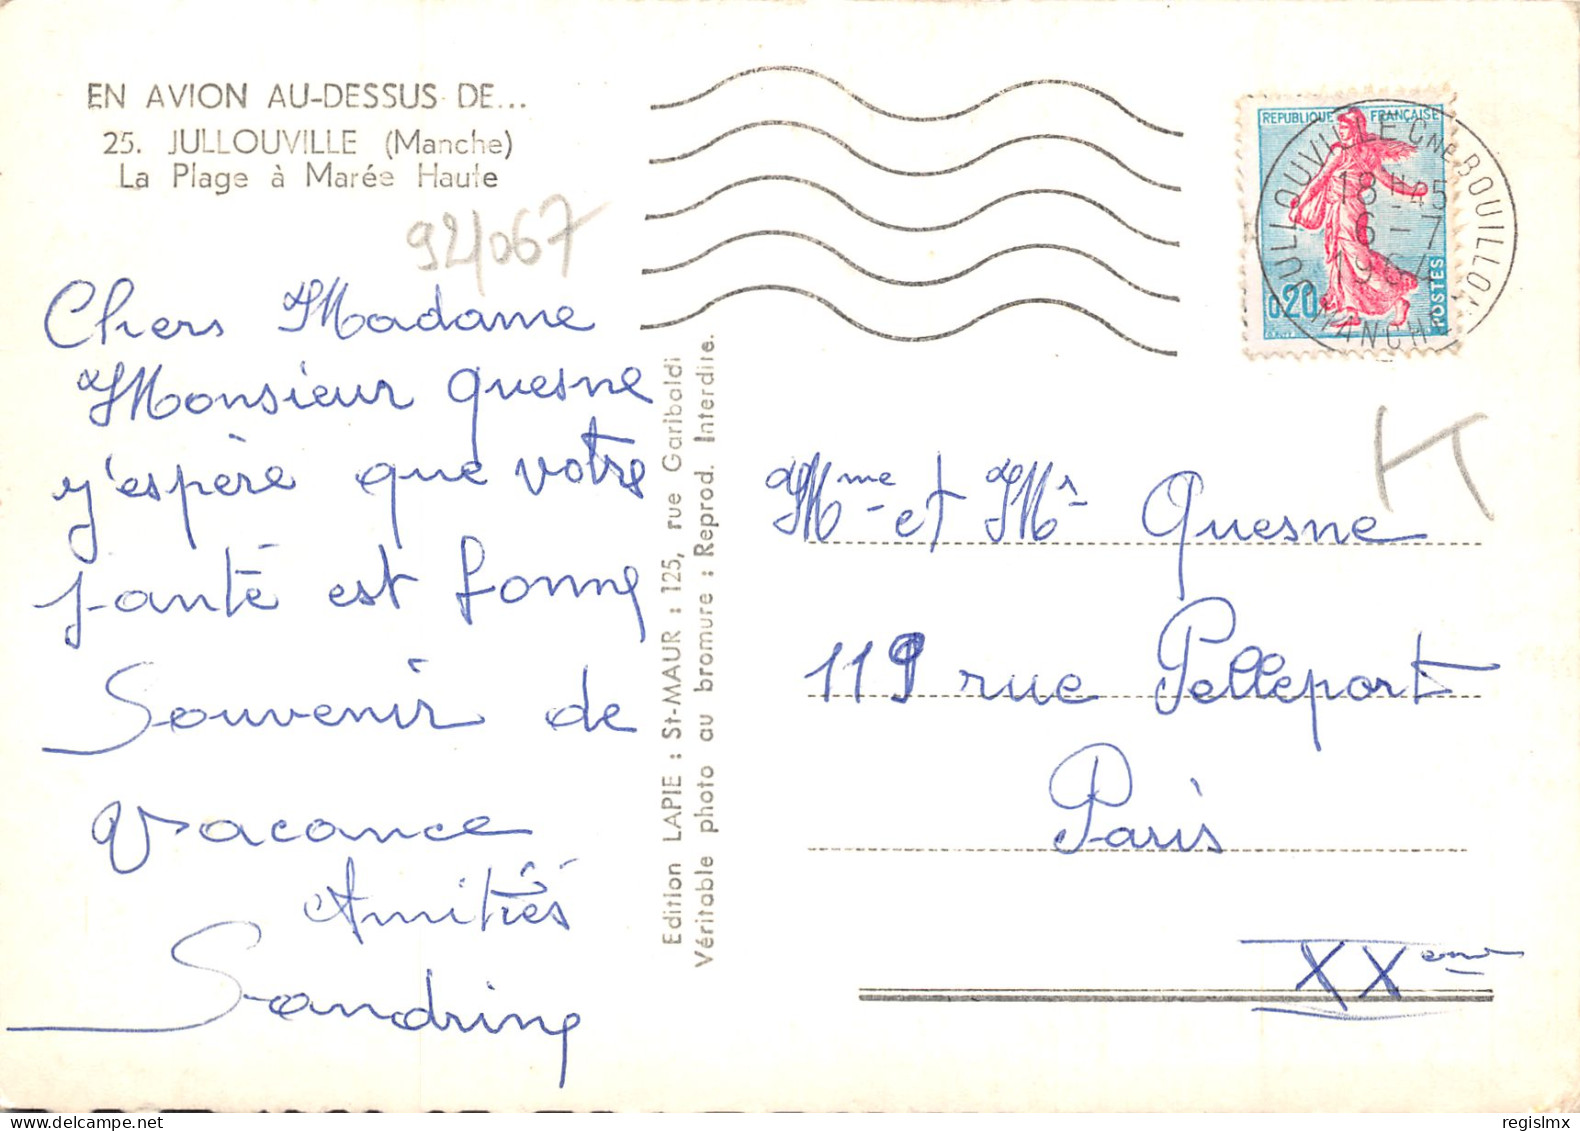 EN AVION AU-DESSUS DE...
25. JULLOUVILLE (Manche)
La Plage à Marée Haute
92/067
Chers Madame
Monsieur Quesne
j'espère que votre
santé est bonne
Souvenir de
Vacance
Amitiés
Sandrine
Edition LAPIE : St-MAUR : 125, rue Garibaldi
Véritable photo au bromure : Reprod. Interdite.
REPUBLIQUE FRANÇAISE
0,20
POSTES
JULLOUVILLE Cne BOUILLON
18 H 45
6 - 7
1964
MANCHE
Mme et Mr Quesne
119 rue Pelleport
Paris
XXeme
regislmx